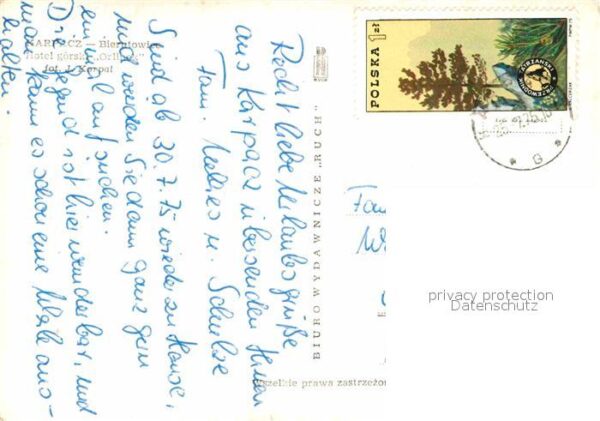 KARPACZ — Bierutowice
Hotel górski „Orlinek"
fot. J. Korpal
Recht liebe Urlaubsgrüße
aus Karpacz übersenden Ihnen
Fam. u. Schulze
Sind ab 30.7.75 wieder zu Hause,
und werden Sie dann ganz gern
einmal aufsuchen.
Die Gegend ist hier wunderbar, und
man kann es schon eine Weile aus-
halten.
BIURO WYDAWNICZE „RUCH"
Wszelkie prawa zastrzeżone
POLSKA 1 zł
TATRZAŃSKI
PRZEWODNIK
G
Fam
privacy protection
Datenschutz